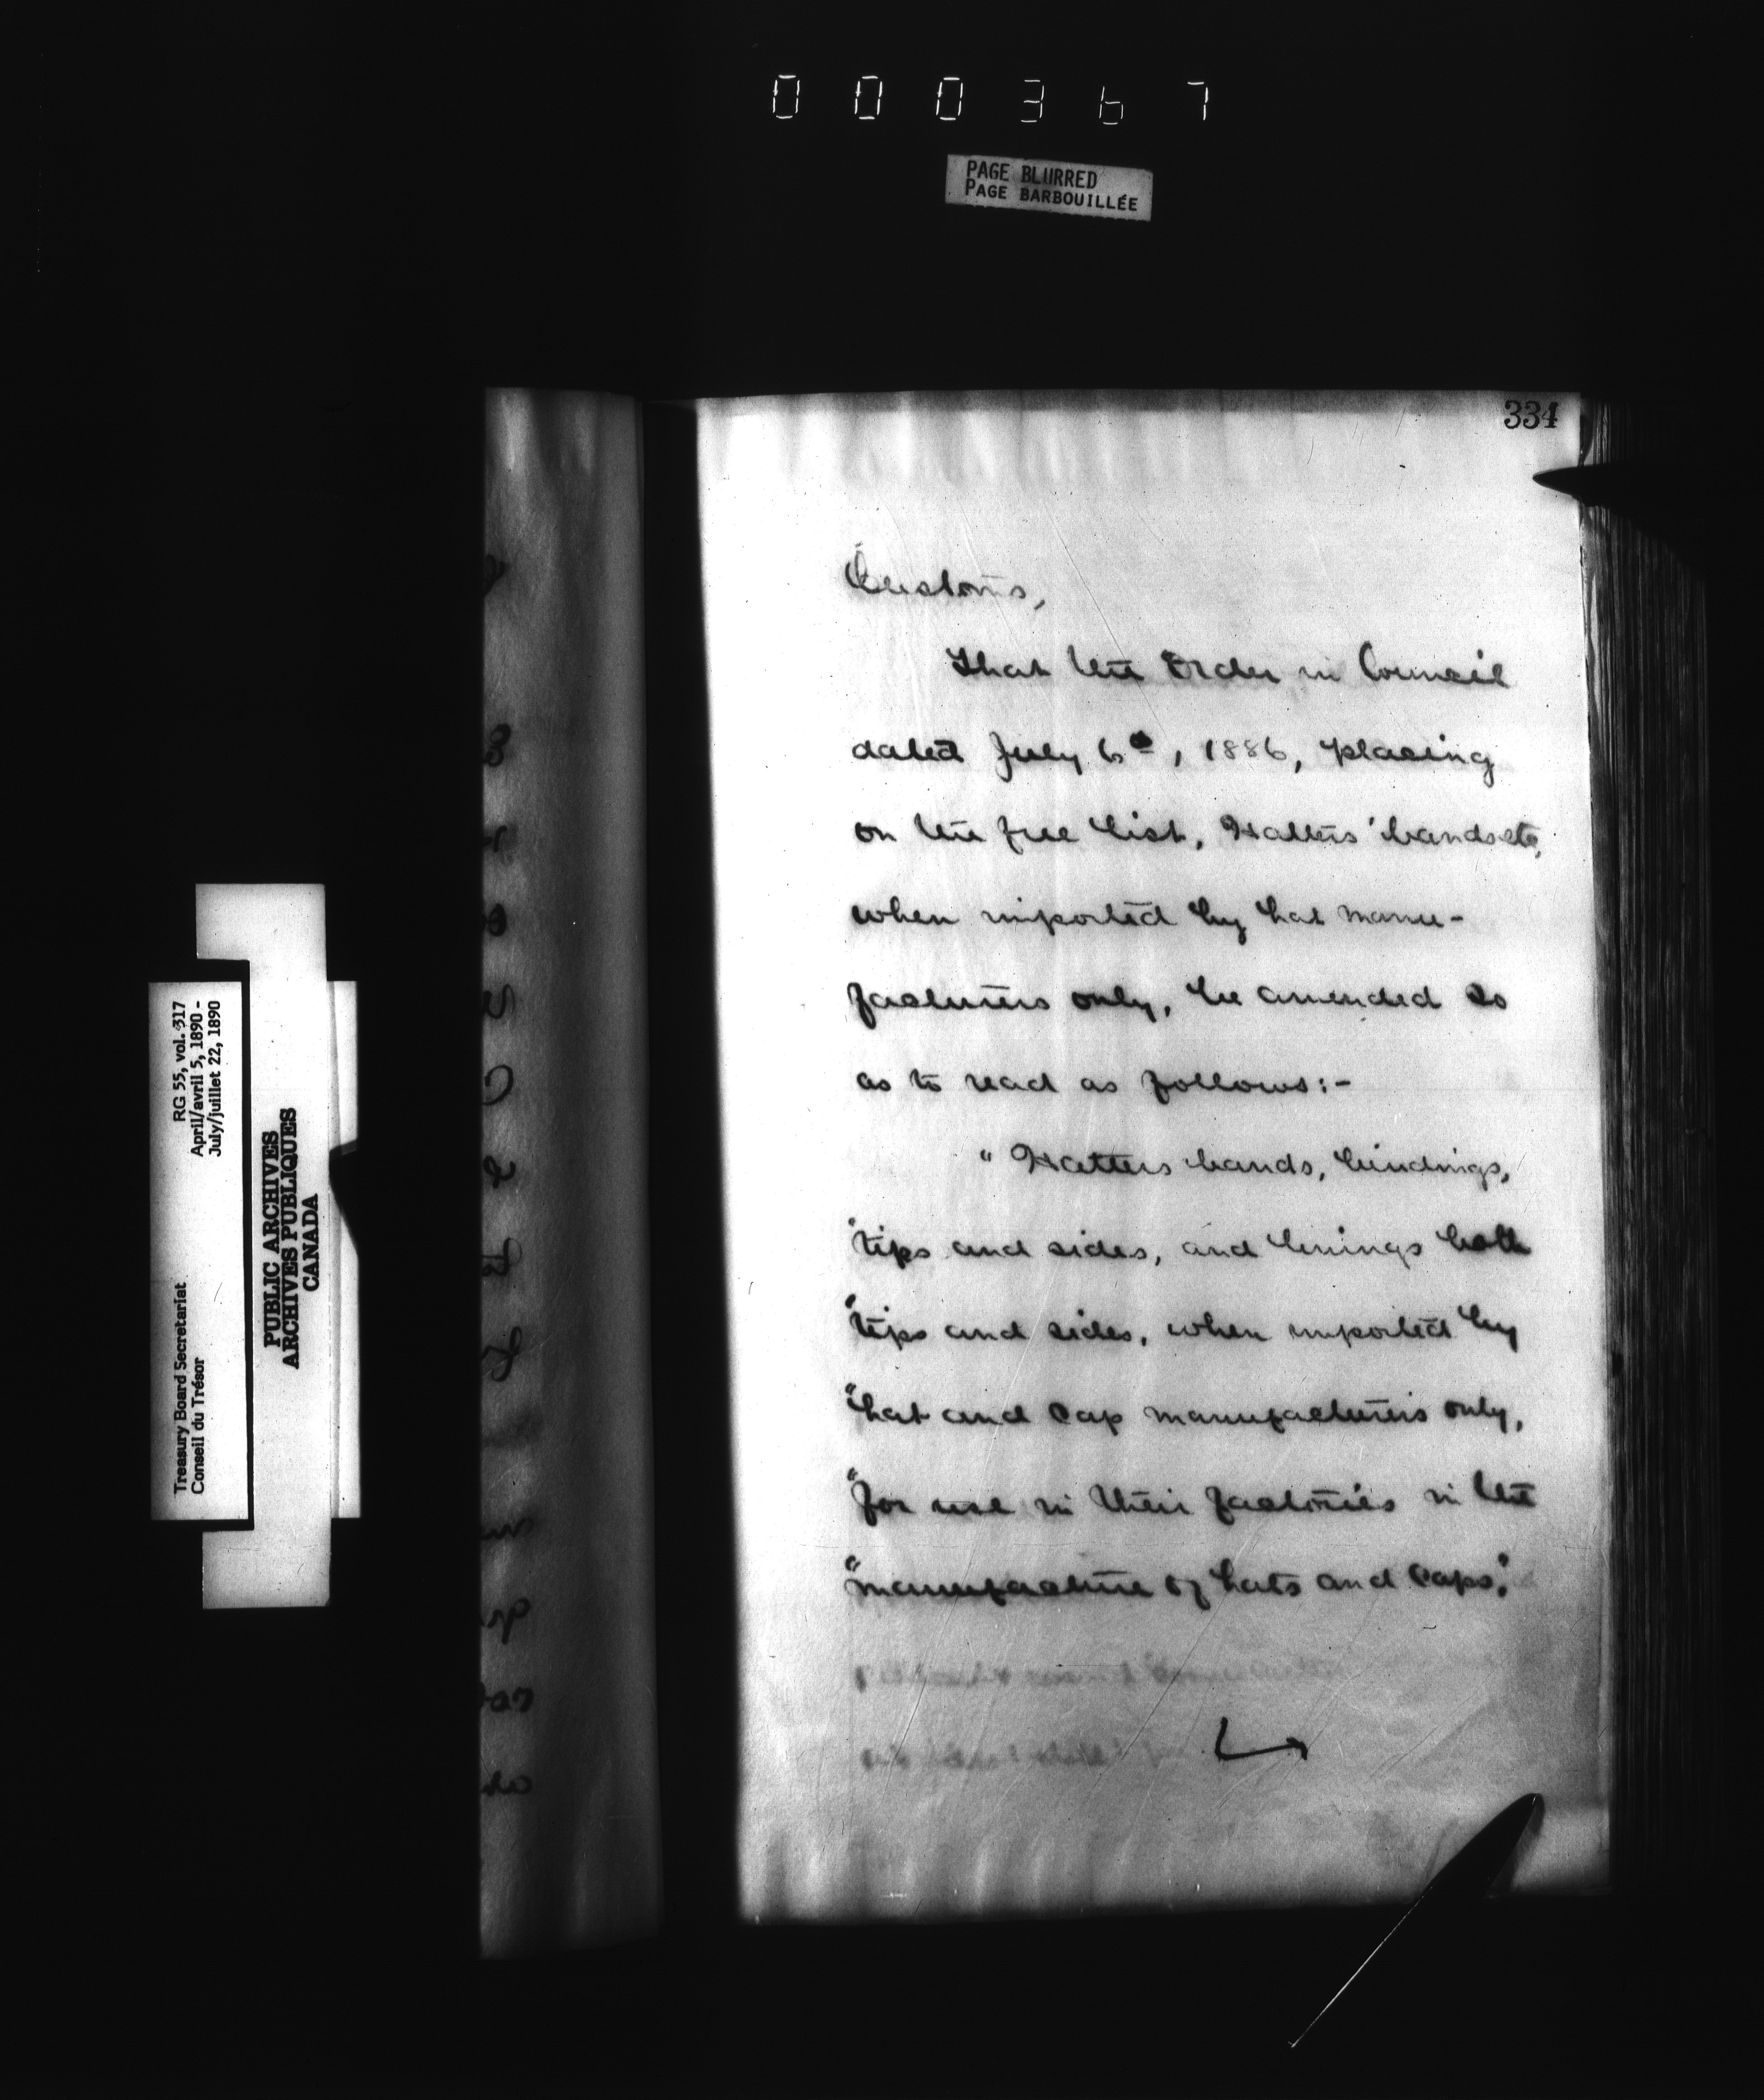 000367
PAGE BLURRED
PAGE BARBOUILLÉE
334
Customs,
That the Order in Council
dated July 6th, 1886, placing
on the free list, Hatters' bands etc,
when imported by hat manu-
facturers only, be amended so
as to read as follows:-
"Hatters bands, bindings,
"tips and sides, and linings both
"tips and sides, when imported by
"hat and cap manufacturers only,
"for use in their factories in the
"manufacture of hats and caps."
RG 55, vol. 317
April/avril 5, 1890 -
July/juillet 22, 1890
Treasury Board Secretariat
Conseil du Trésor
PUBLIC ARCHIVES
ARCHIVES PUBLIQUES
CANADA